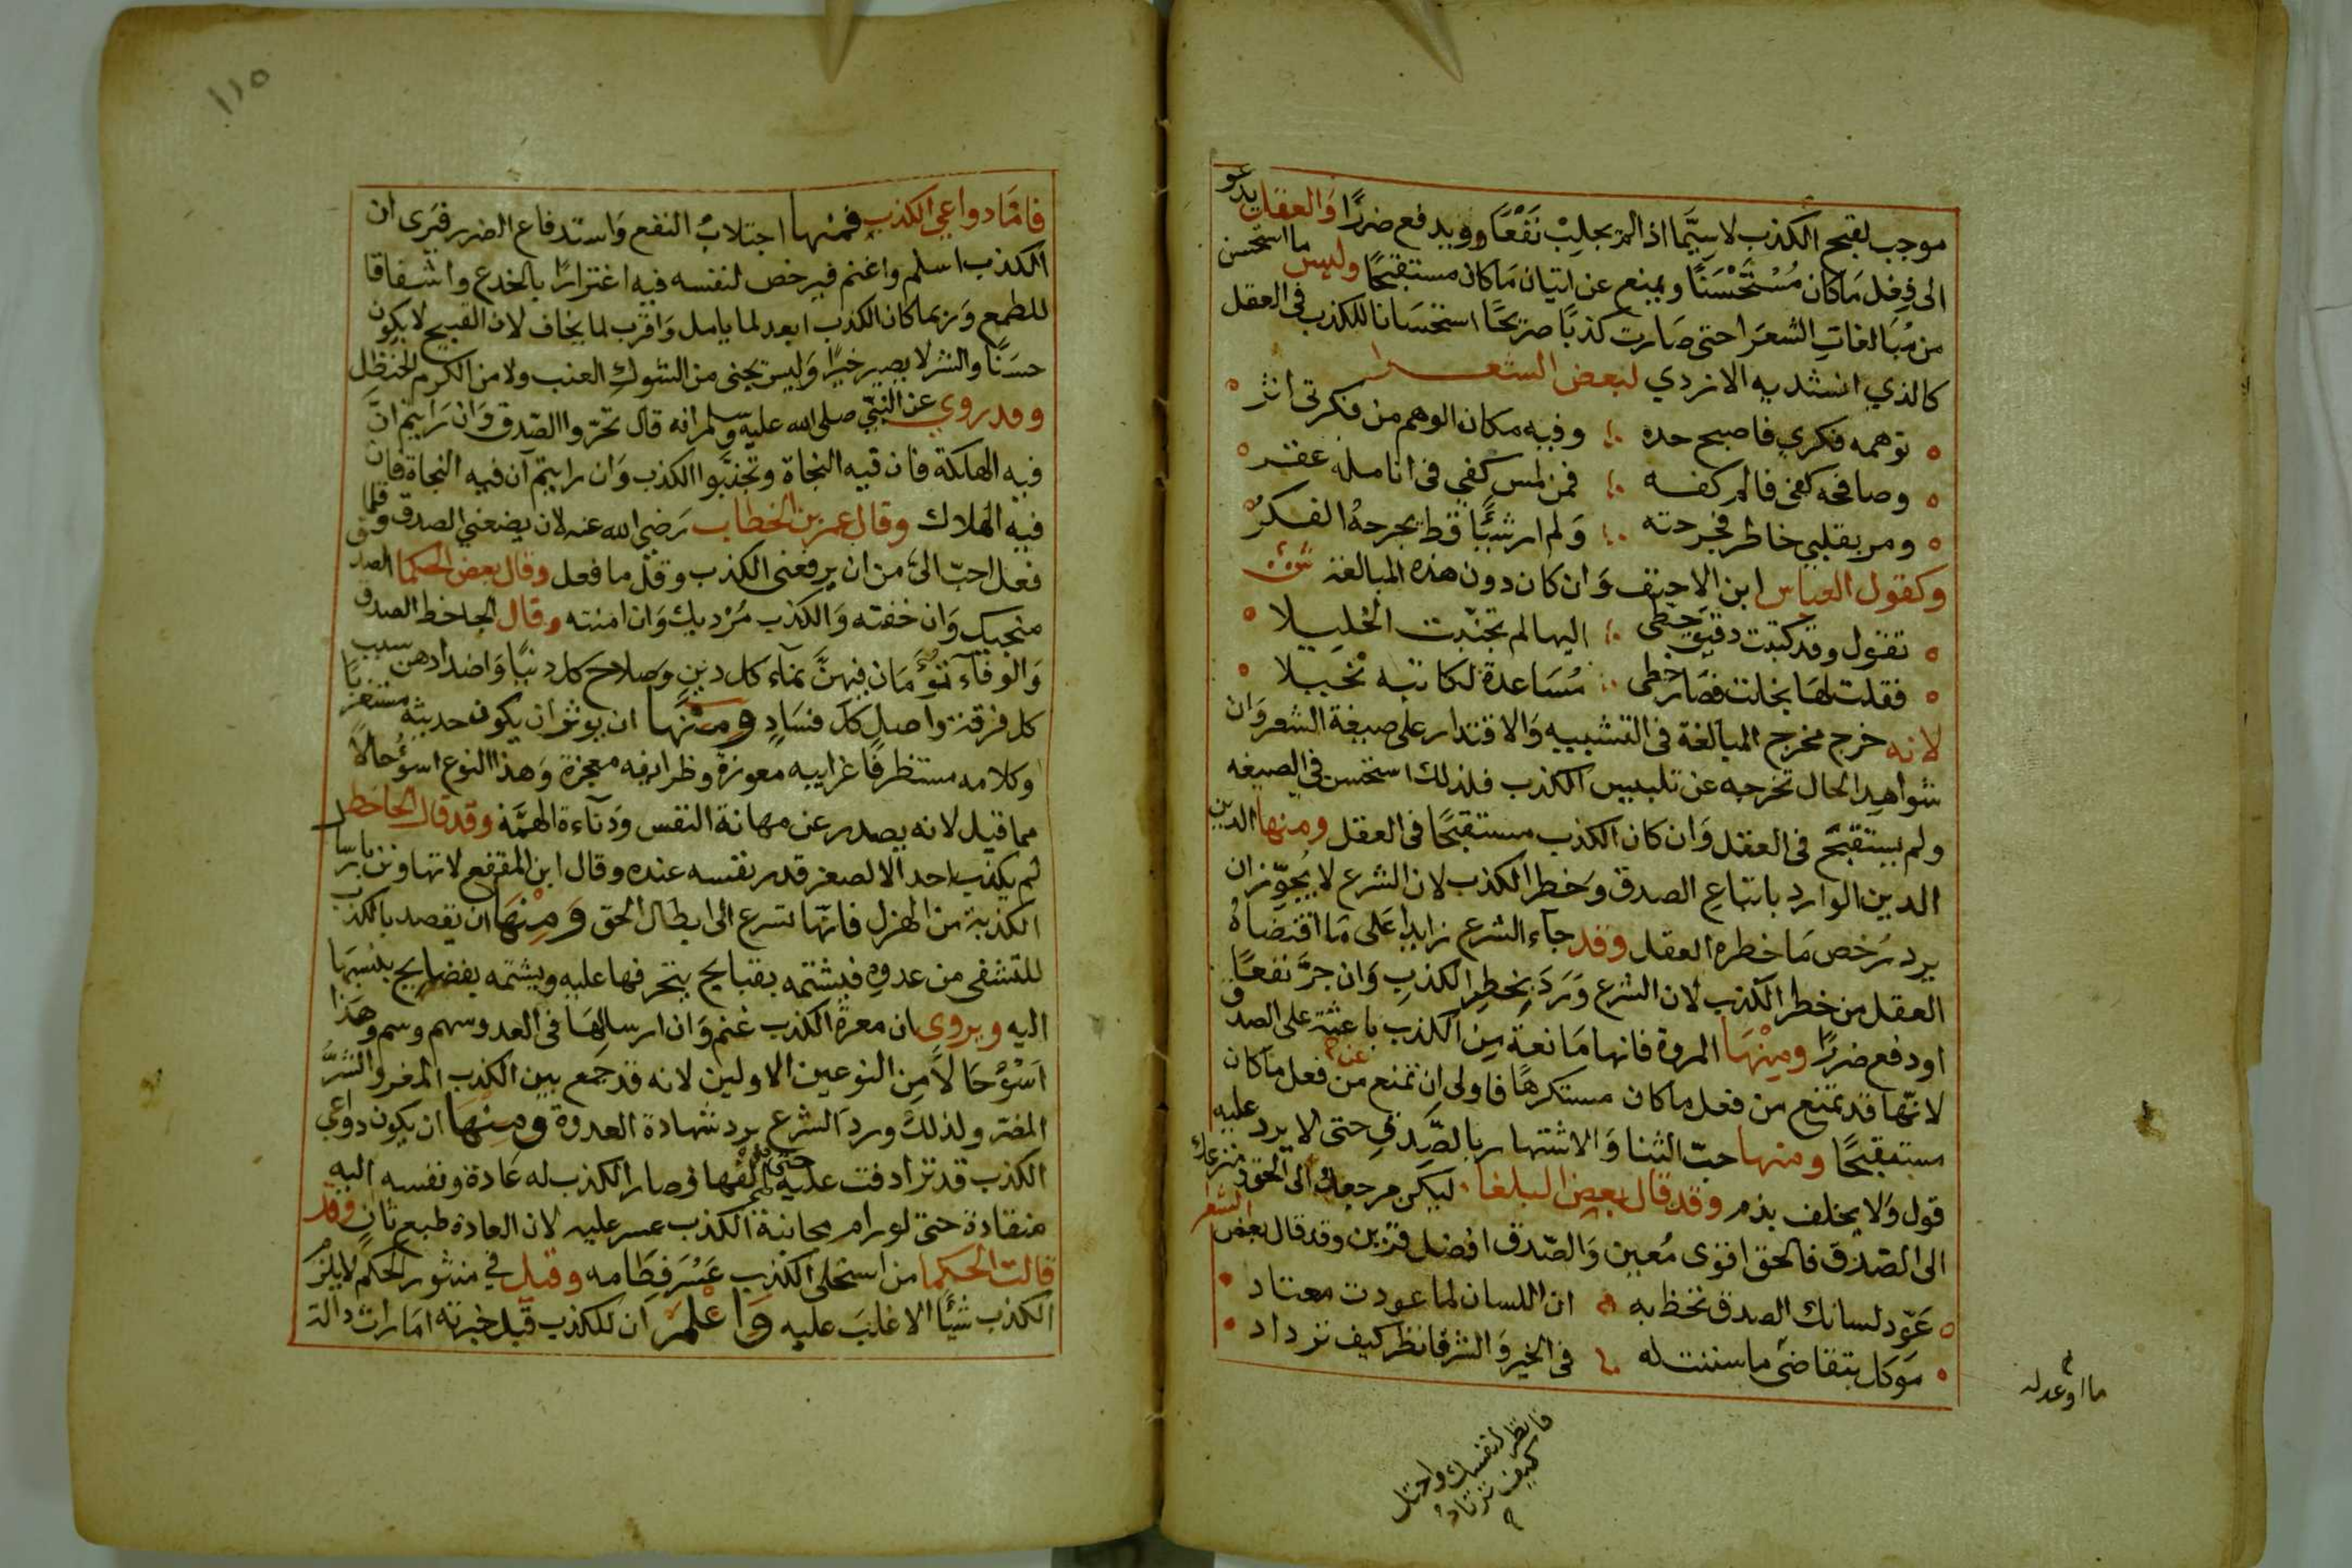 موجب لقبح الكذب لاسِيَّما اذا لم يجلب نَفْعًا ويدفع ضررًا وَالعقل يدعو
الى فِعْل مَا كان مُسْتَحْسَنًا ويمنع عن اتيان مَا كان مستقبحًا وليس ما استحسن
من مُبَالغاتِ الشعرا حتى صَارت كذبًا صريحًا استحسَانا للكذب فى العقل
كالذي انشديه الازدي لبعض الشعرا
توهمه فكري فاصبح خده وفيه مكان الوهم من فكرتى اثر
وصافحه كفى فالم كفه فمن لمس كفي فى انامله عقر
ومر بقلبي خاطر فجرحته وَلم ار شيًا قط يجرحهُ الفكرُ
وكقول العباس ابن الاحنف وَان كان دون هذه المبالغة
تقول وقد كتبت دقيق خطى اليها لم تجنبت الجليلا
فقلت لهَا نحلت فصَار خطى مُسَاعدة لكاتبه نحيلا
لانه خرج مخرج المبالغة فى التشبيه وَالاقتدار على صيغة الشعر وَان
شواهد الحال تخرجه عن تلبيس الكذب فلذلك استحسن في الصيغه
ولم يستقبح فى العقل وَان كان الكذب مستقبحًا فى العقل ومنها الدين
الدين الوارد باتباع الصدق وَخطر الكذب لان الشرع لا يُجوِّز ان
يرد برخص مَا خطره العقل وقد جآء الشرع زايدا عَلى مَا اقتضاهُ
العقل من خطر الكذب لان الشرع وَرَدَ بِخطر الكذبِ وَان جرَّ نفعًا
او دفع ضررًا ومِنْهَا المروة فانها مَانعة مِن الكذب باعثة على الصدق
لانّها قد تمنع من فعل ما كان مستكرهًا فاولى ان تمنع من فعل ما كان
عن
مستقبحًا ومنها حبّ الثنا وَالاشتهار بالصِّدقِ حتى لا يرد عليه
قول وَلا يخلف بذم وقد قال بعض البلغا ليكن مرجعك الى الحق ومنزعك
الى الصّدق فالحق اقوى مُعين وَالصّدق افضل قرين وقد قال بعض الشعرا
عَوّد لسانك الصدق تحظ به ان اللسان لما عودت معتاد
مَوكل بتقاضى ما سننت له فى الخير وَالشر فانظر كيف تزداد
ما اوعد له
فانظر لنفسك واختل
كيف ترتاد
١١٥
فامّا دواعي الكذب فمنها اجتلابُ النفع وَاستدفاع الضرر فيَرى ان
الكذب اسلم واغنم فيرخص لنفسه فيه اغترارًا بالخدع واشفاقا
للطمع وَربما كان الكذب ابعد لما يامل وَاقرب لما يخاف لان القبيح لا يكون
حسَنًا والشر لا يصير خيرًا وَليس يجنى من الشوكِ العنب ولا من الكرم الحنظل
وقد روي عن النبيّ صلى الله عليه وسلم انه قال تحرّوا الصّدق وَان رَايتم انَّ
فيه الهلكة فان فيه النجاة وتجنّبوا الكذب وَان رايتم ان فيه النجاة فان
فيه الهلاك وقال عمر بن الخطاب رَضى الله عنه لان يضعني الصدق وقلّما
فعل احبّ الىّ من ان يرفعنى الكذب وقلّ ما فعل وقال بعض الحكما الصدق
منجيك وَان خفته وَالكذب مُرْديك وَان امنته وقال الجاحظ الصدق
وَالوفآء تؤمَان فيهنَّ تمآء كل دينٍ وَصلاح كل دنيًا وَاضدادهن سبب
كل فرقة واصل كل فسَادٍ ومنها ان يوثر ان يكون حديثه مستعذبًا
وكلامه مستظرفًا غرايبه معوزة وظرايفه معجزة وَهذا النوع اسؤُ حالًا
مما قيل لانه يصدر عن مهانة النفس وَدَنآءة الهمَّة وقد قال الجاحظ
لم يكذب احد الا لصغر قدر نفسه عنده وقال ابن المقفع لا تهاونن بارسال
الكذبة من الهزل فانّها تسرع الى ابطال الحق وَمِنْهَا ان يقصد بالكذب
للتشفى من عدوه فيشتمه بقبايح يتخرفها عليه ويشتمه بفضايح ينسبهَا
اليه ويروى ان معرة الكذب غنم وَان ارسالهَا فى العدو سهم وسم وهَذا
اَسْوُ حَالًا من النوعين الاولين لانه قد جمع بين الكذب المغر والشرُّ
المضر ولذلك ورد الشرع برد شهادة العدوة ومِنْهَا ان يكون دواعي
الكذب قد ترادفت عليه حتى الفها فصار الكذب له عَادة ونفسه اليه
منقادة حتى لو رام مجانبة الكذب عسر عليه لان العادة طبع ثانٍ وقد
قالت الحكما من استحلى الكذب عَسُرَ فِطَامه وقيل في منثور الحكم لا يلزم
الكذب شيًا الا غلبَ عليه وَاعْلَمْ ان للكذب قبل خبرته امَارات دالة